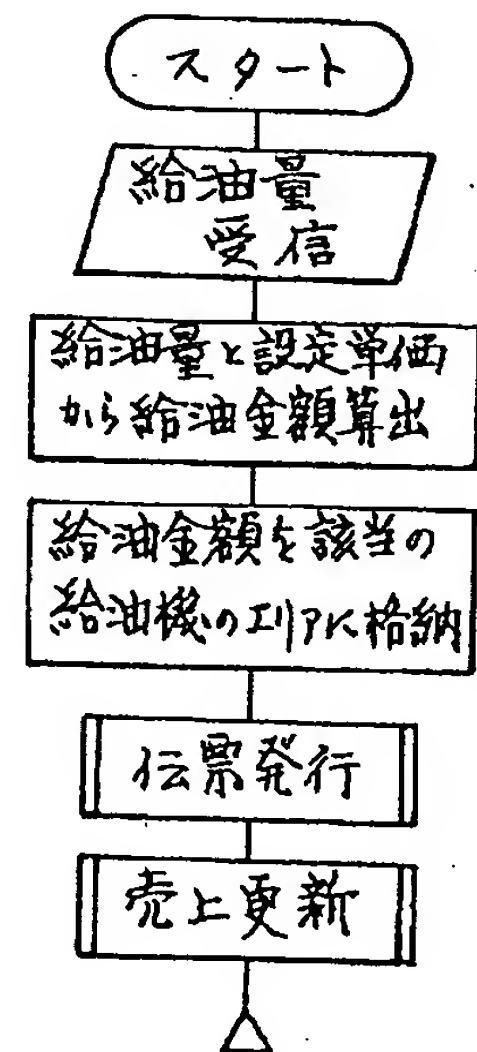 スタート
給油量
受信
給油量と設定単価
から給油金額算出
給油金額を該当の
給油機のエリアに格納
伝票発行
売上更新